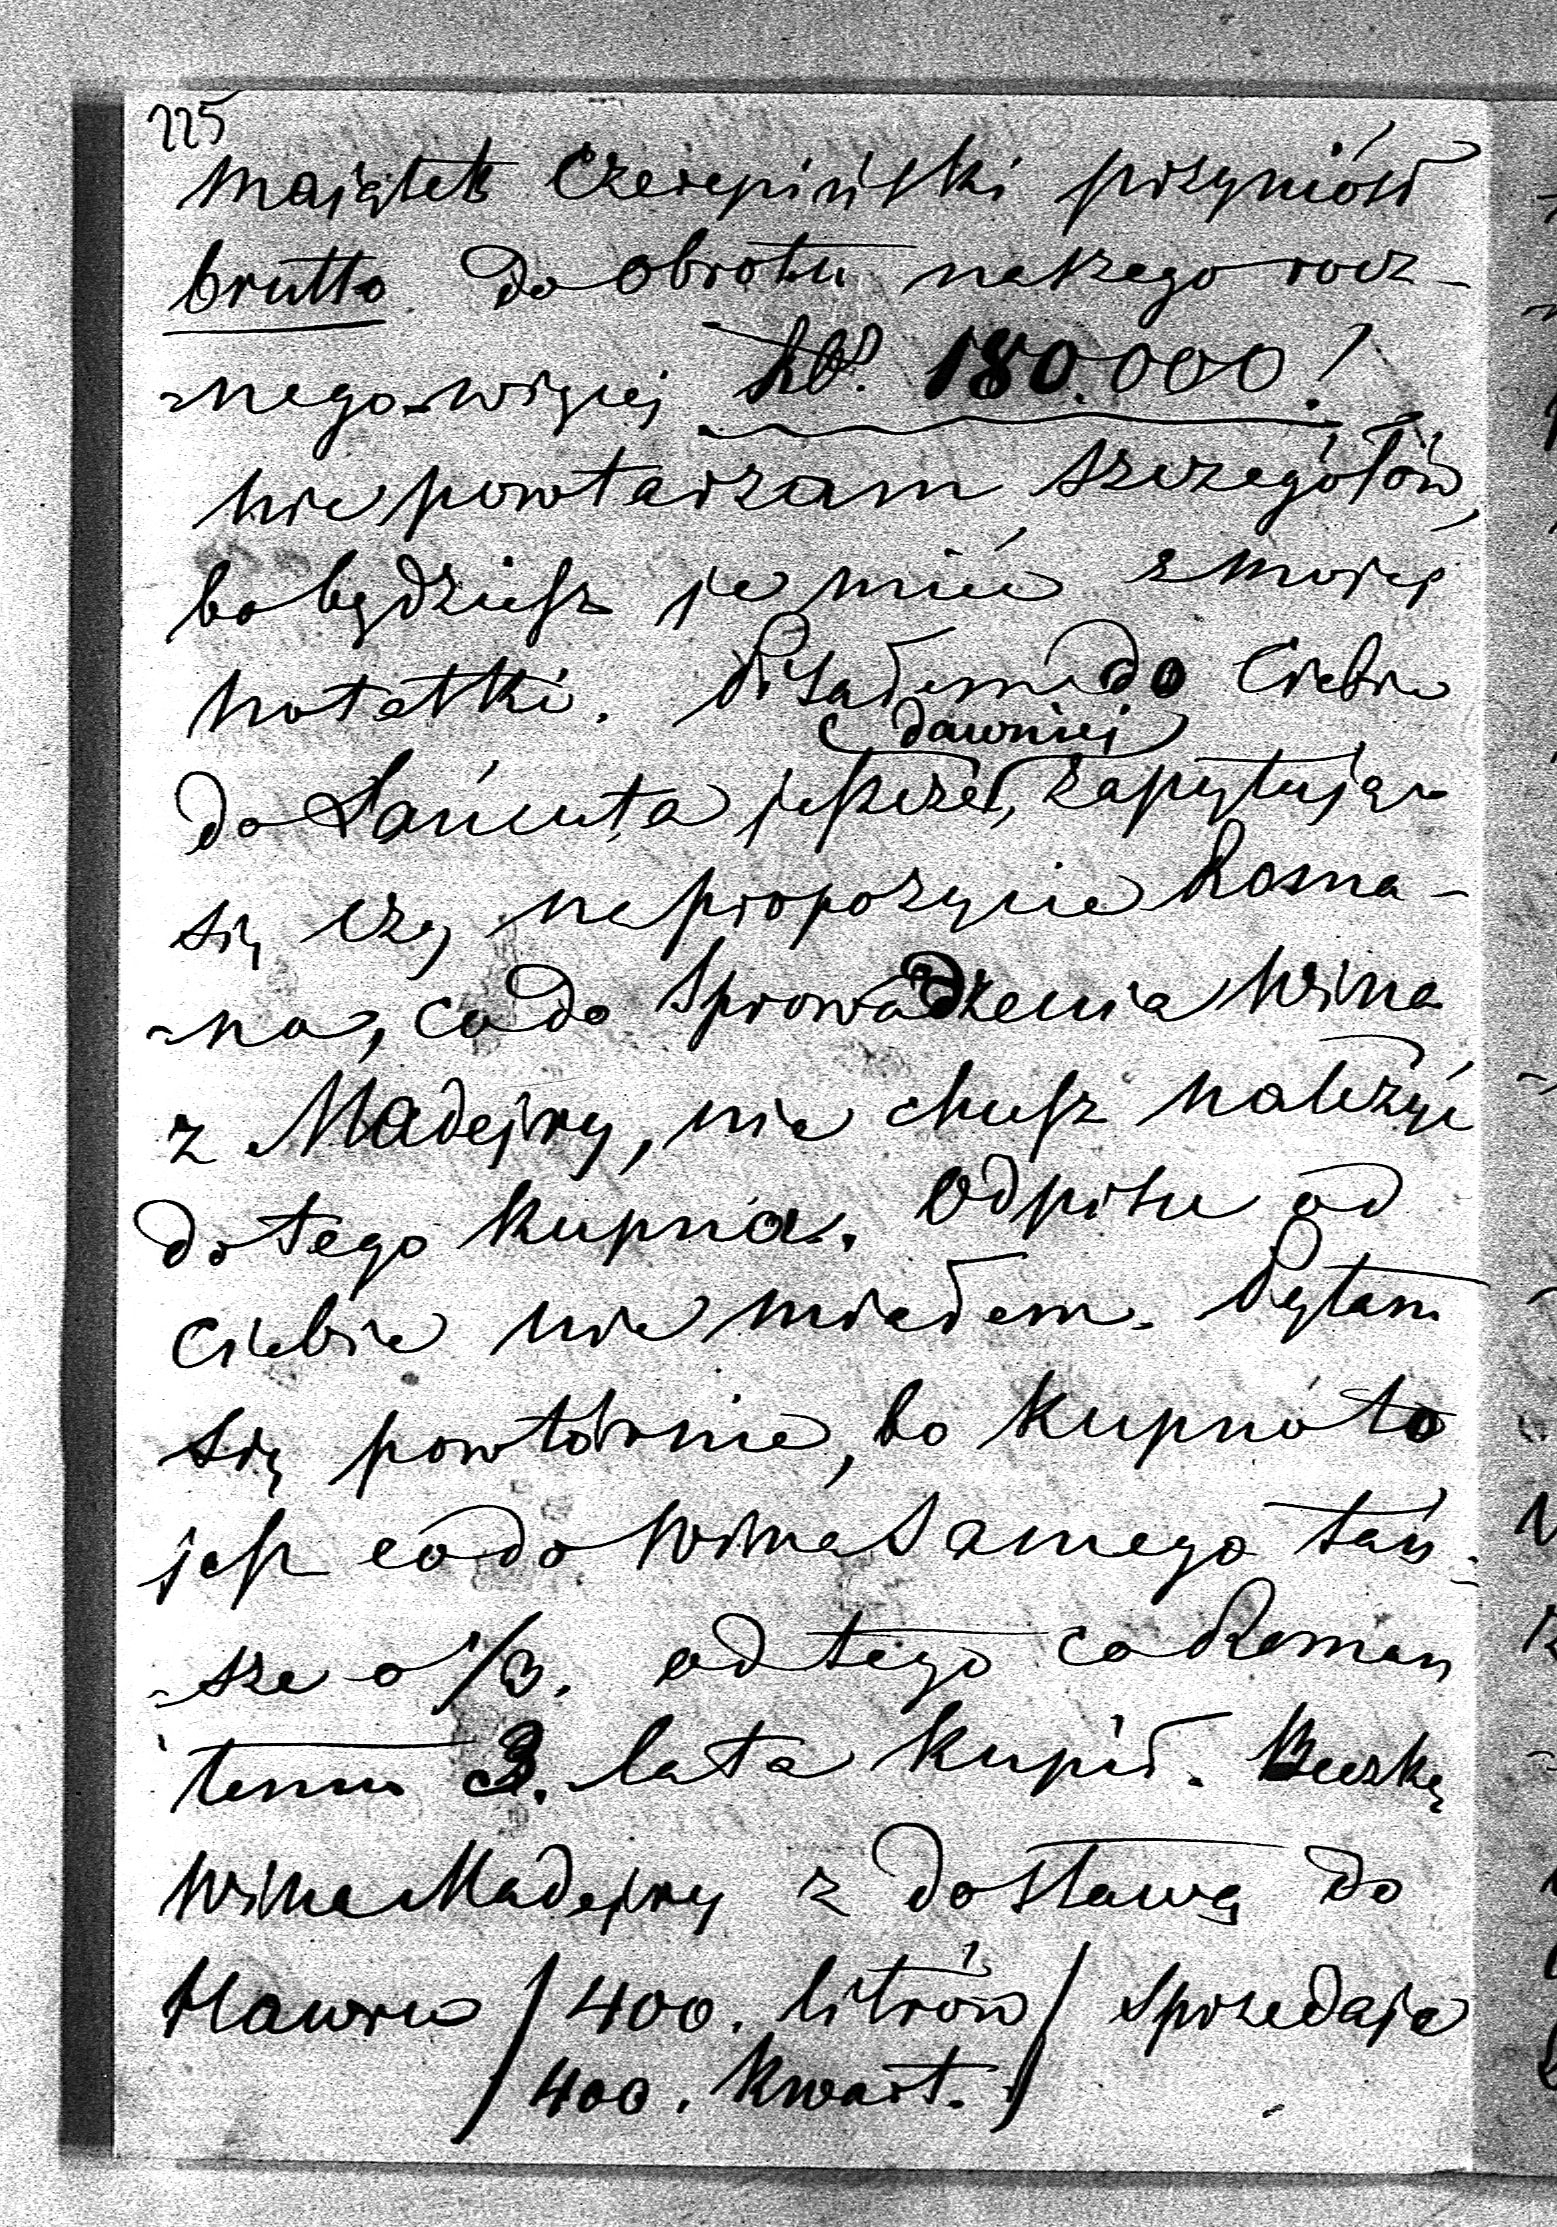 225
majątek Czerepiński przyniósł
brutto do obrotu naszego rocz-
-nego więcej Rbs. 180.000!
nie powtarzam szczegółów,
bo będziesz je mieć z mojej
notatki. Pisałem do Ciebie
dawniej
do Łańcuta jeszcze, zapytując
się czy na propozycie Roma-
-na, co do sprowadzenia wina
z Madejry, nie chcesz należyć
do tego kupna. Odpisu od
Ciebie nie miałem. Pytam
się powtórnie, bo kupno to
jest co do wina samego tań-
-sze o 1/3. od tego co Roman
temu 3. lata kupił. Beczkę
wina Madejry z dostawą do
Hawru / 400. litrów / sprzedaje
/ 400. kwart. /